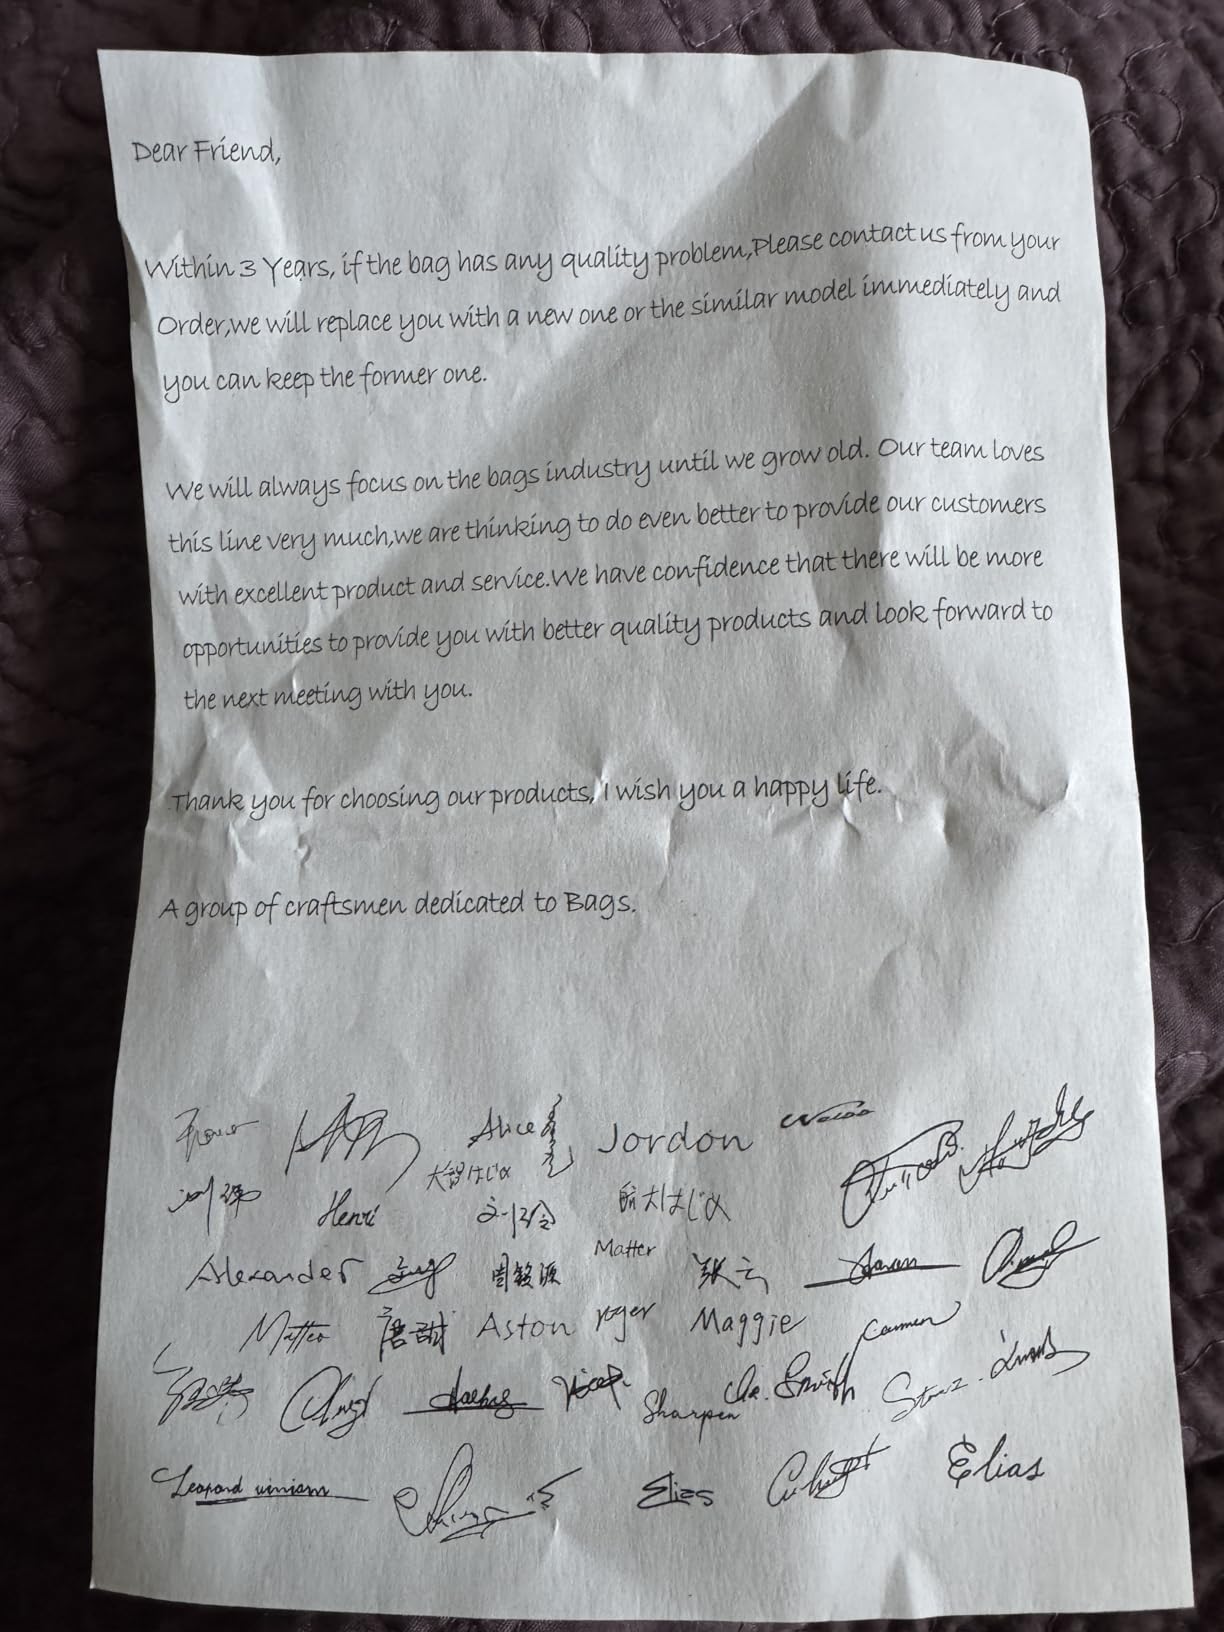 Dear Friend,
Within 3 Years, if the bag has any quality problem,Please contact us from your
Order,we will replace you with a new one or the similar model immediately and
you can keep the former one.
We will always focus on the bags industry until we grow old. Our team loves
this line very much,we are thinking to do even better to provide our customers
with excellent product and service.We have confidence that there will be more
opportunities to provide you with better quality products and look forward to
the next meeting with you.
Thank you for choosing our products, I wish you a happy life.
A group of craftsmen dedicated to Bags.
Alice Jordon
大智はじめ
Henri 航大はじめ
Matter
Alexander 张云 Aaron
Matteo 唐甜 Aston Roger Maggie Carmen
Sharpen Smith
Leopard Elias Elias